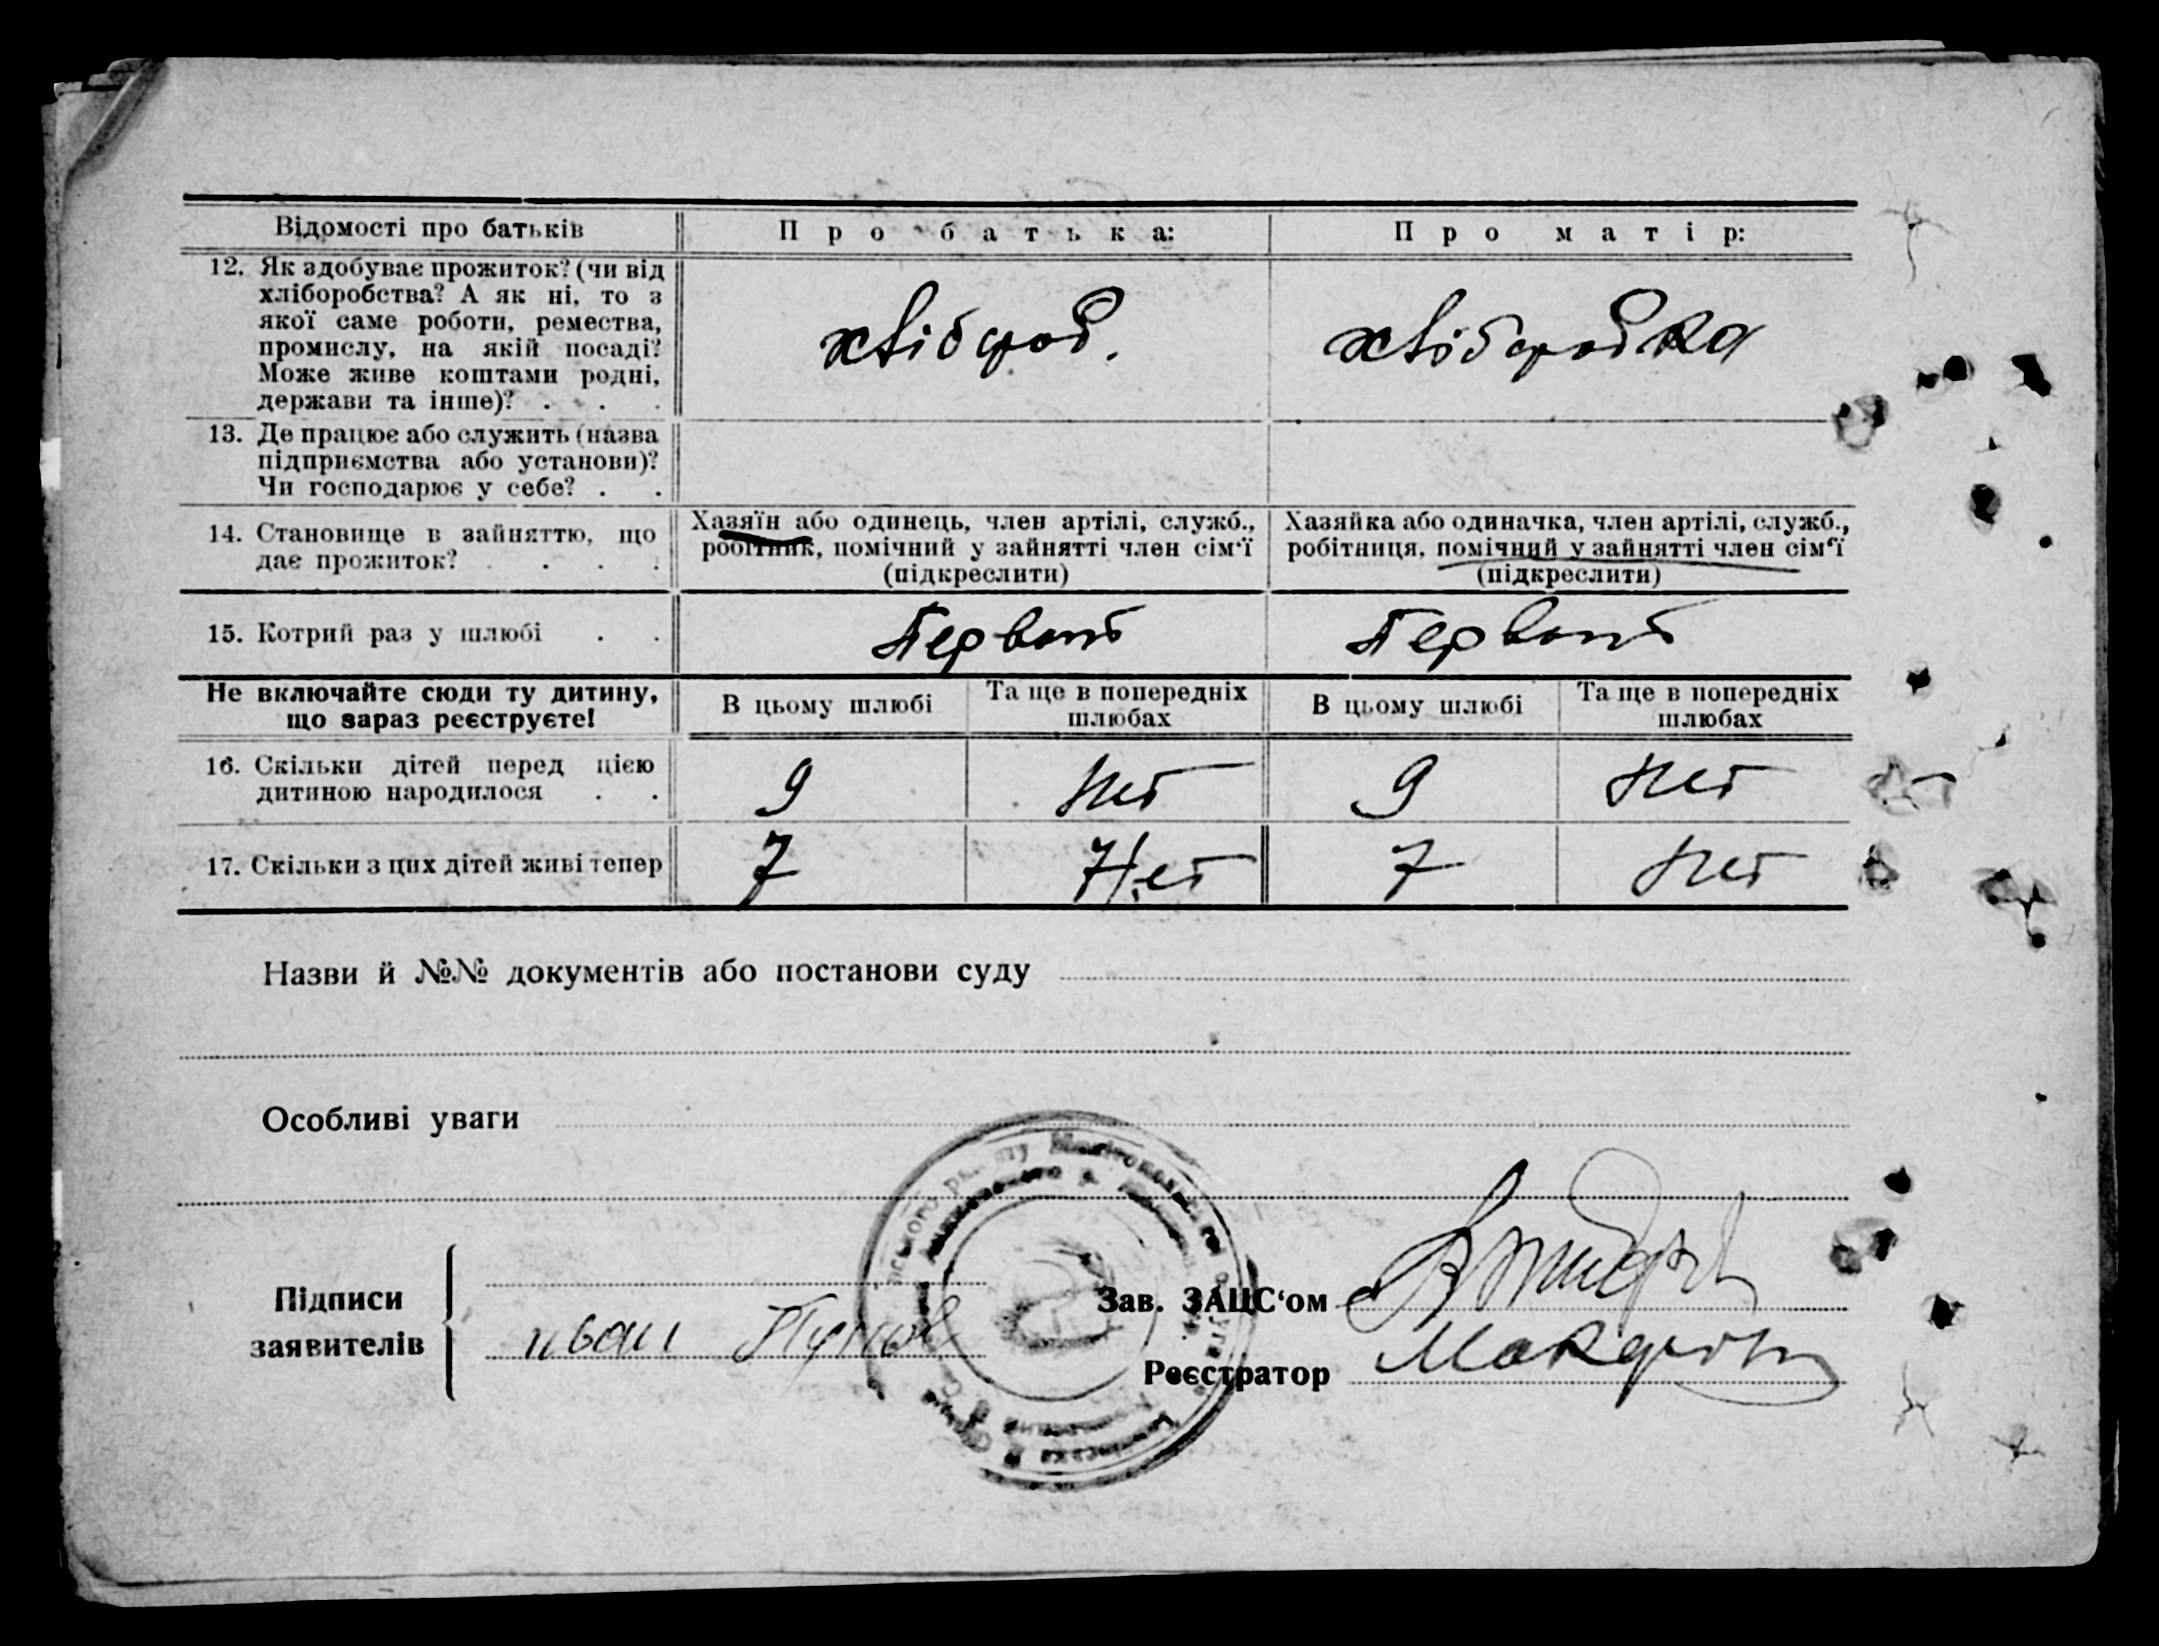 Відомості про батьків
Про батька:
Про матір:
12. Як здобуває прожиток? (чи від
хліборобства? А як ні, то з
якої саме роботи, ремества,
промислу, на якій посаді?
Може живе коштами родні,
держави та інше)? . . .
хлібороб.
хліборобка
13. Де працює або служить (назва
підприємства або установи)?
Чи господарює у себе? . .
14. Становище в зайняттю, що
дає прожиток? . . . .
Хазяїн або одинець, член артілі, служб.,
робітник, помічний у зайнятті член сім'ї
(підкреслити)
Хазяйка або одиначка, член артілі, служб.,
робітниця, помічний у зайнятті член сім'ї
(підкреслити)
15. Котрий раз у шлюбі . .
Первом
Первом
Не включайте сюди ту дитину,
що зараз реєструєте!
В цьому шлюбі
Та ще в попередніх
шлюбах
В цьому шлюбі
Та ще в попередніх
шлюбах
16. Скільки дітей перед цією
дитиною народилося . .
9
Нет
9
Нет
17. Скільки з цих дітей живі тепер
7
Нет
7
Нет
Назви й №№ документів або постанови суду
Особливі уваги
Підписи
заявителів
иван
Зав. ЗАЦС'ом
Реєстратор